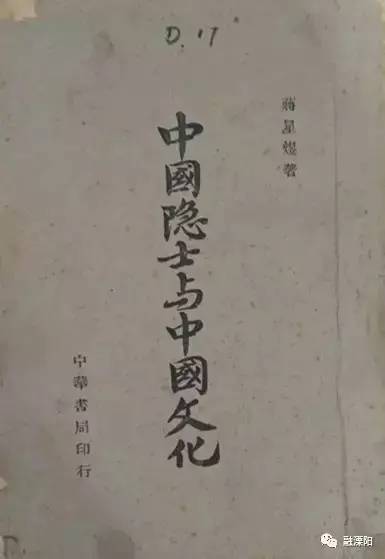 D.17
蔣星煜著
中國隐士与中國文化
中華書局印行
融溧阳